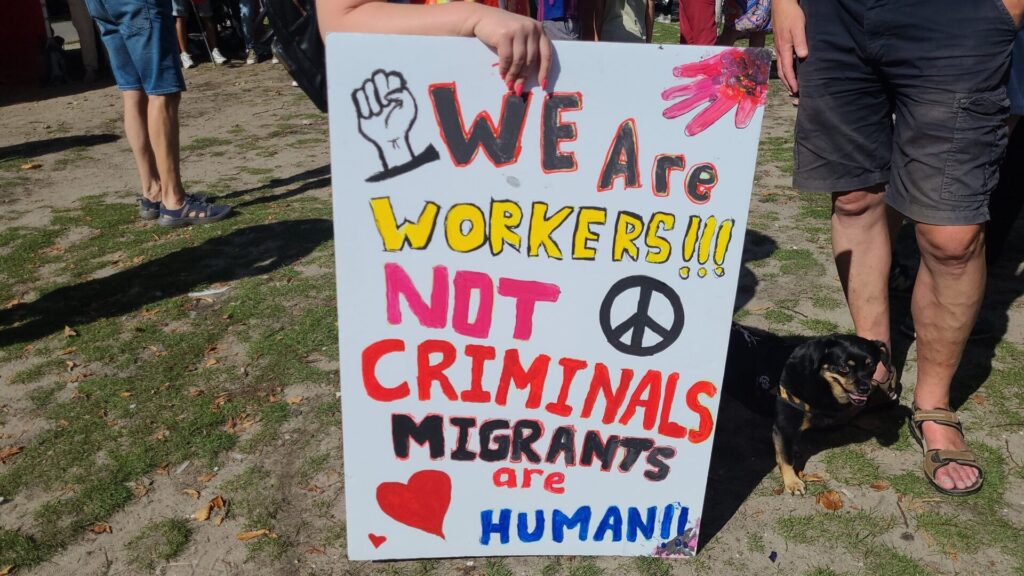 WE Are
WORKERS!!!
NOT
CRIMINALS
MIGRANTS
are
HUMAN!!